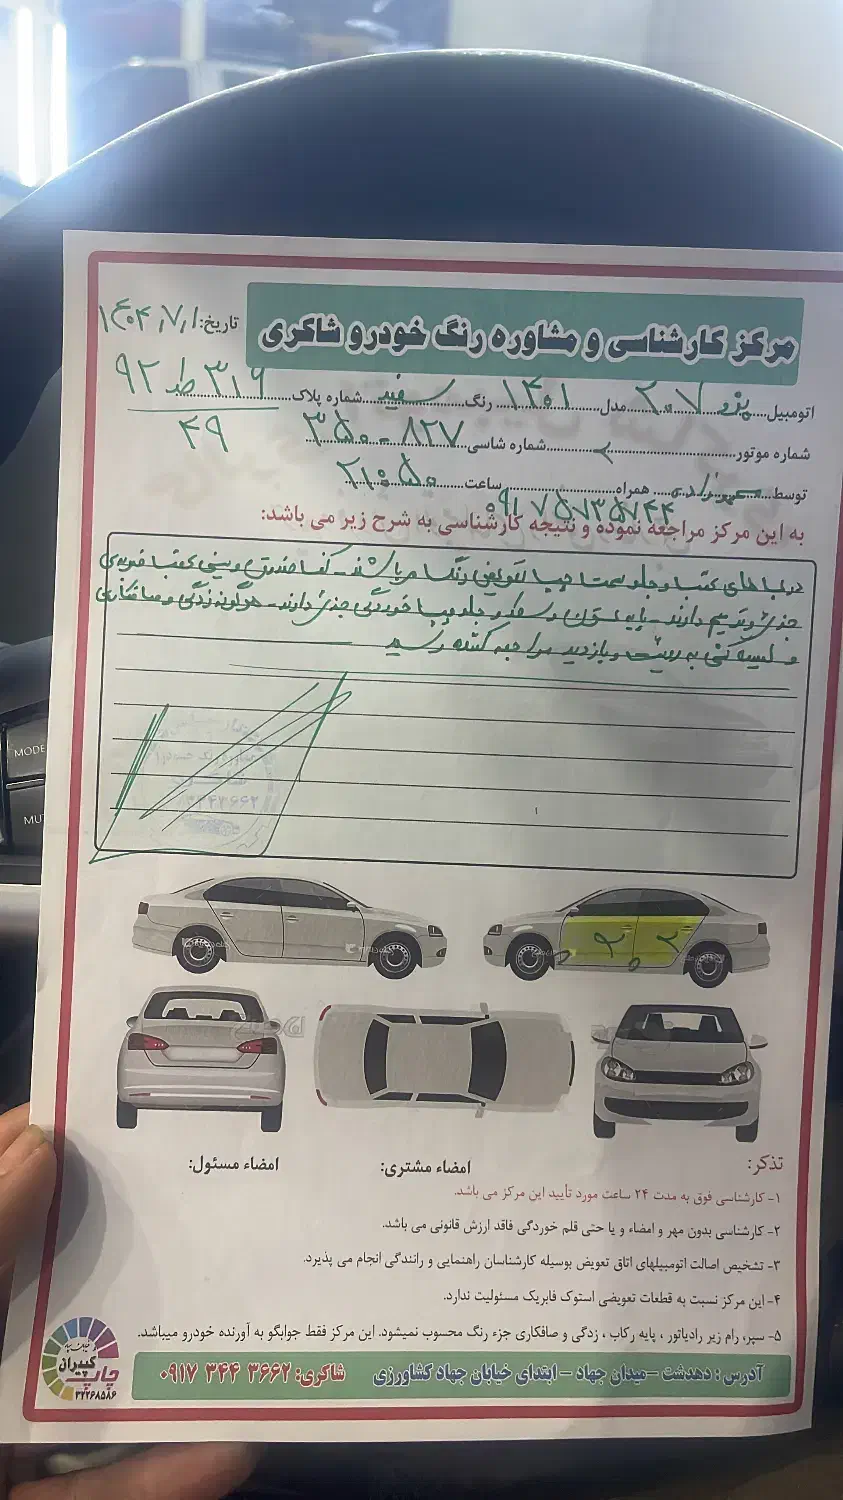 مرکز کارشناسی و مشاوره رنگ خودرو شاکری
تاریخ: ۱۴۰۴/۷/۱
اتومبیل پژو ۲۰۷ مدل ۱۴۰۱ رنگ سفید شماره پلاک ۳۱۶ ط ۹۲
۴۹
شماره موتور شماره شاسی ۸۲۷ - ۳۵۰
توسط همراه ساعت ۲۱:۵۰
۰۹۱۷۵۷۳۵۷۴۴
به این مرکز مراجعه نموده و نتیجه کارشناسی به شرح زیر می باشد:
درب های عقب و جلو سمت چپ تعویض رنگ می باشند - کف صندوق و سینی عقب ضربه ی
جزئی و ترمیم دارند - پایه ستون و جلو چپ خوردگی جزئی دارند - هرگونه زدگی و صافکاری
و لیسه گی به رویت و بازدید مراجعه کننده رسید
MODE
MU
۳۴۴۳۶۶۲
امضاء مسئول:
امضاء مشتری:
تذکر:
۱- کارشناسی فوق به مدت ۲۴ ساعت مورد تأیید این مرکز می باشد.
۲- کارشناسی بدون مهر و امضاء و یا حتی قلم خوردگی فاقد ارزش قانونی می باشد.
۳- تشخیص اصالت اتومبیلهای اتاق تعویض بوسیله کارشناسان راهنمایی و رانندگی انجام می پذیرد.
۴- این مرکز نسبت به قطعات تعویضی استوک فابریک مسئولیت ندارد.
۵- سپر، رام زیر رادیاتور ، پایه رکاب ، زدگی و صافکاری جزء رنگ محسوب نمیشود. این مرکز فقط جوابگو به آورنده خودرو میباشد.
آدرس : دهدشت - میدان جهاد - ابتدای خیابان جهاد کشاورزی شاکری: ۳۶۶۲ ۳۴۴ ۰۹۱۷
چاپ کبیران
۳۲۲۶۸۵۸۶